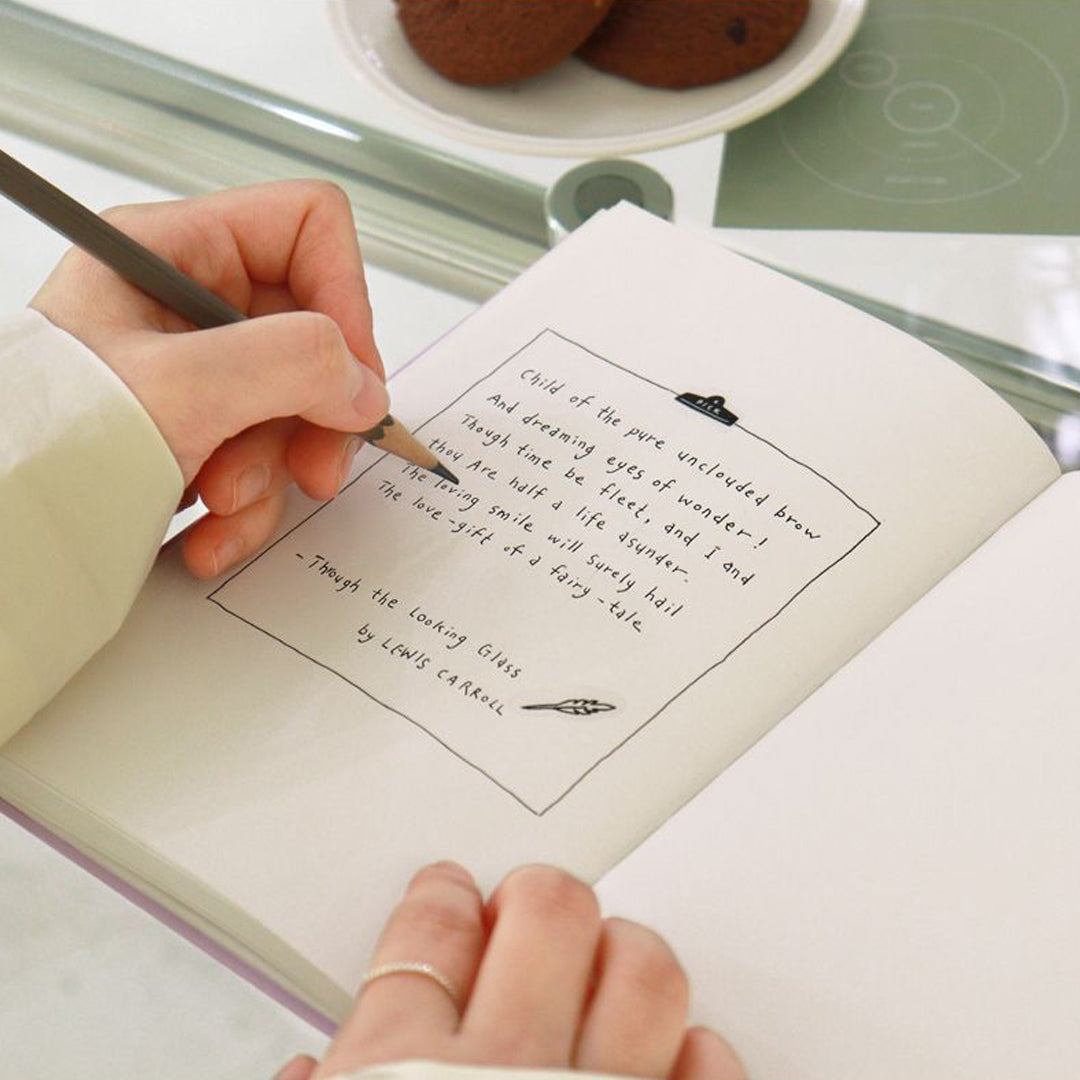 PICK
Child of the pure unclouded brow
And dreaming eyes of wonder!
Though time be fleet, and I and
thou Are half a life asunder.
The loving smile will surely hail
The love-gift of a fairy-tale
- Through the Looking Glass
by LEWIS CARROLL